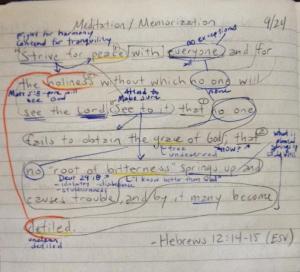 Meditation/Memorization 9/24
Fight for harmony
contend for tranquility
no exceptions
"Strive for peace [with] everyone, and for
all
the holiness without which no one will
Matt 5:8 - pure will
see God
Attend to
Make sure
none
see the Lord. See to it that no one
fails to obtain the grace of God; that
free
undeserved
HOW?
What is
no "root of bitterness" springs up and
Deut 29:18
"I know better than God"
- idolatry disobedience
- stubbornness
causes trouble, and by it many become
defiled.
unclean
defiled
- Hebrews 12:14-15 (ESV)